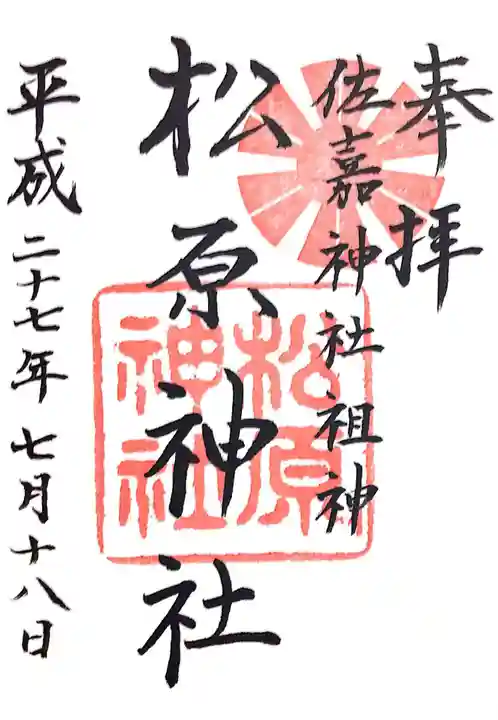 奉拝
佐嘉神社祖神
松原神社
松原神社
平成二十七年七月十八日